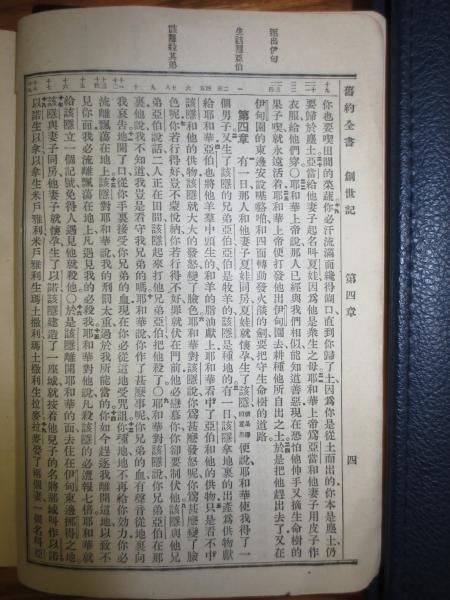 舊約全書 創世記 第四章 四
逐出伊甸
生該隱亞伯
該隱殺其弟
你也要喫田間的菜蔬你必汗流滿面纔得餬口直到你歸了土因爲你是從土而出的你本是塵土仍
要歸於塵土亞當給他妻子起名叫夏娃因爲他是衆生之母耶和華上帝爲亞當和他妻子用皮子作
衣服給他們穿○耶和華上帝說那人已經與我們相似能知道善惡現在恐怕他伸手又摘生命樹的
果子喫就永遠活着耶和華上帝便打發他出伊甸園去耕種他所自出之土於是把他趕出去了又在
伊甸園的東邊安設和四面轉動發火燄的劍要把守生命樹的道路
第四章 有一日那人和他妻子夏娃同房夏娃就懷孕生了該隱就是得的意思便說耶和華使我得了一
個男子又生了該隱的兄弟亞伯亞伯是牧羊的該隱是種地的有一日該隱拿地裏的出產爲供物獻
給耶和華亞伯也將他羊羣中頭生的和羊的脂油獻上耶和華看中了亞伯和他的供物只是看不中
該隱和他的供物該隱就大大的發怒變了臉色耶和華對該隱說你爲甚麼發怒呢你爲甚麼變了臉
色呢你若行得好豈不蒙悅納你若行得不好罪就伏在門前他必戀慕你你卻要制伏他該隱與他兄
弟亞伯說話二人正在田間該隱起來打他兄弟亞伯把他殺了○耶和華對該隱說你兄弟亞伯在那
裏他說我不知道我豈是看守我兄弟的嗎耶和華說你作了甚麼事呢你兄弟的血有聲音從地裏向
我哀告地開了口從你手裏接受你兄弟的血現在你必從這地受咒詛你種地地不再給你効力你必
流離飄蕩在地上該隱對耶和華說我的刑罰太重過於我所能當的你如今趕逐我離開這地以致不
見你面我必流離飄蕩在地上凡遇見我的必殺我耶和華對他說凡殺該隱的必遭報七倍耶和華就
給該隱立一個記號免得人遇見他就殺他○於是該隱離開耶和華的面去住在伊甸東邊挪得之地
該隱與妻子同房他妻子就懷孕生了以諾該隱建造了一座城就按着他兒子的名將那城叫作以諾
以諾生以拿以拿生米戶雅利米戶雅利生瑪土撒利瑪土撒利生拉麥拉麥娶了兩個妻一個名叫亞